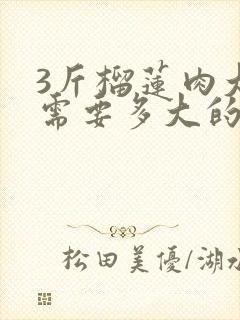 3斤榴莲肉大
需要多大的
松田美優/湖水